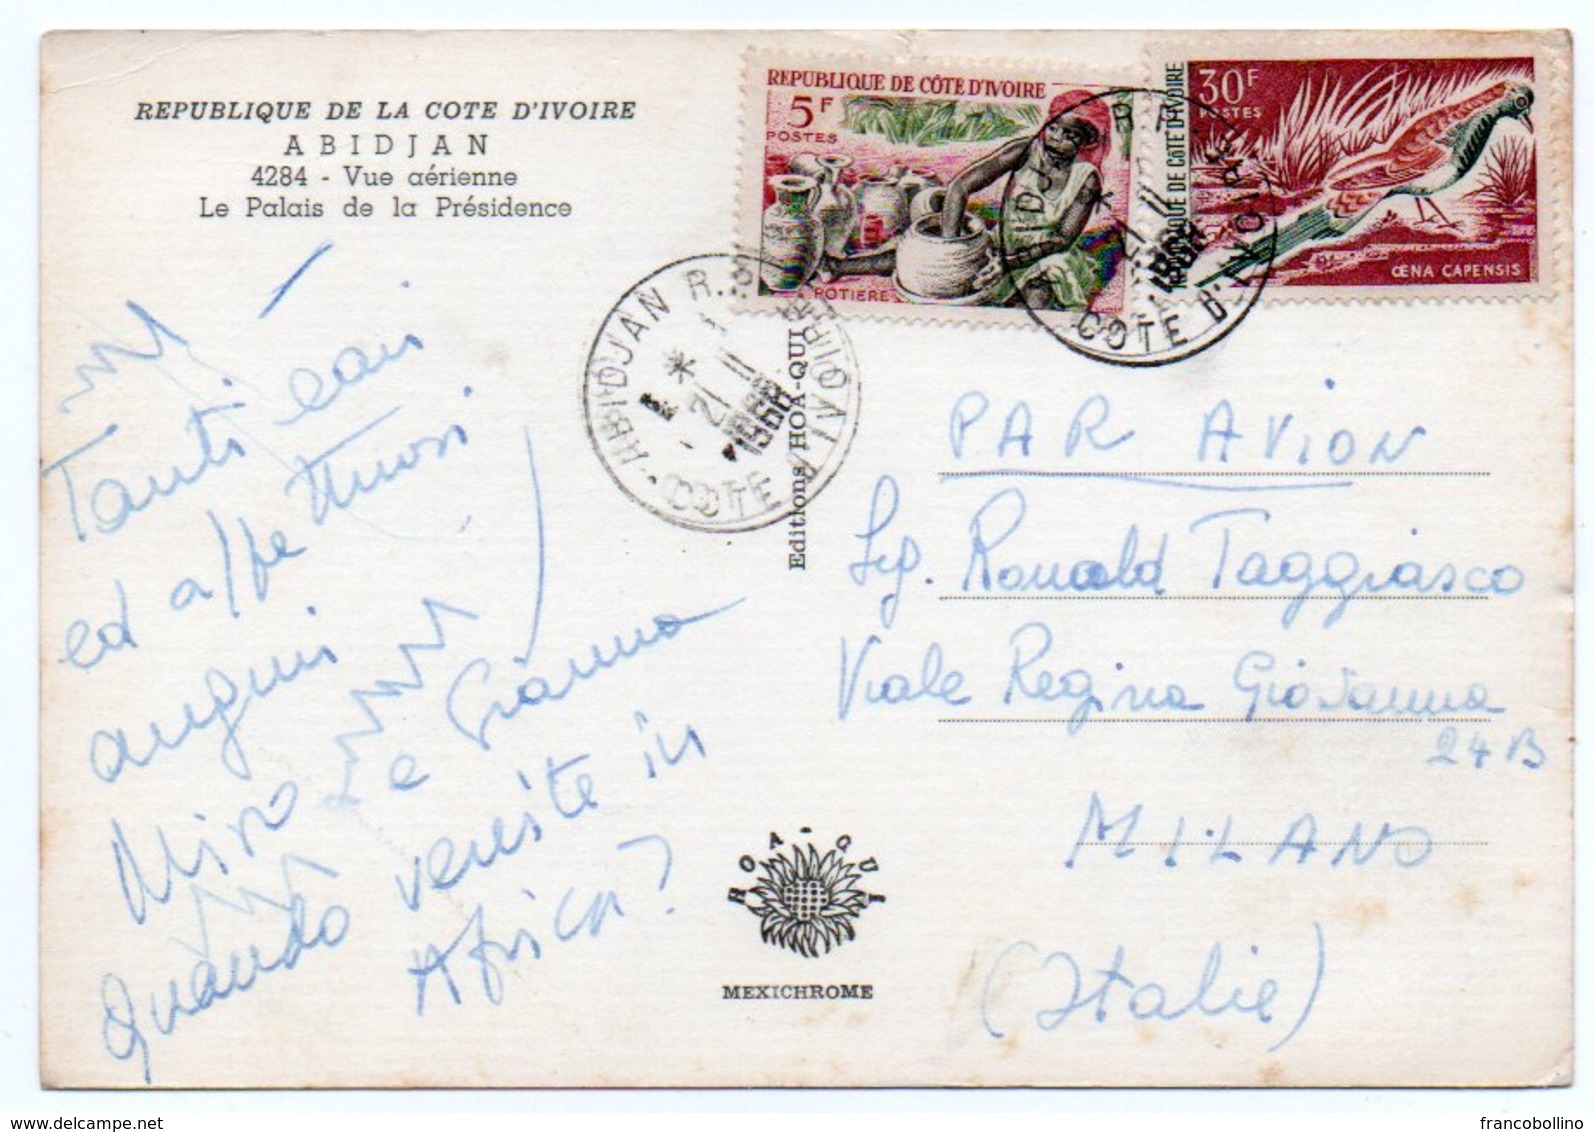 REPUBLIQUE DE LA COTE D'IVOIRE
ABIDJAN
4284 - Vue aérienne
Le Palais de la Présidence
REPUBLIQUE DE CÔTE D'IVOIRE
5F
POSTES
POTIERE
30F
POSTES
REPUBLIQUE DE CÔTE D'IVOIRE
ŒNA CAPENSIS
ABIDJAN R.P.
21 11
1966
COTE D'IVOIRE
ABIDJAN R.P.
21 11
1966
COTE D'IVOIRE
Tanti cari
ed affettuosi
auguri
Miro e Gianna
Quando veniste in
Africa?
Editions HOA-QUI
HOA-QUI
MEXICHROME
PAR AVION
Sig. Ronald Taggiasco
Viale Regina Giovanna
24 B
MILANO
(Italie)
francobollino